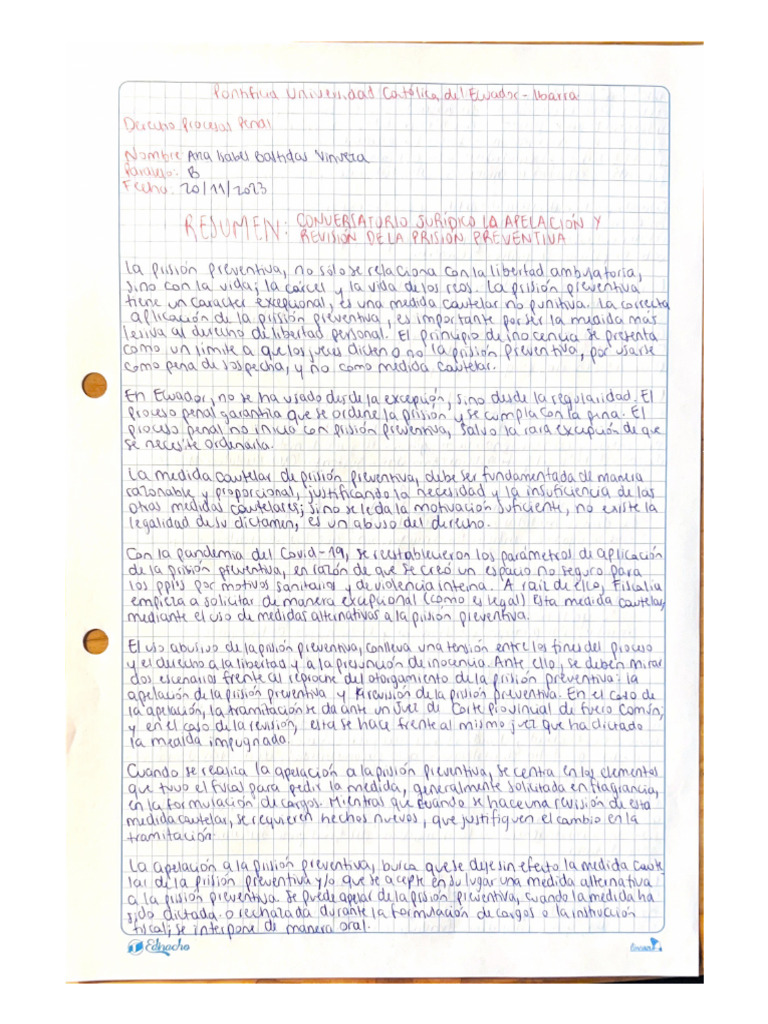 Pontificia Universidad Católica del Ecuador - Ibarra
Derecho Procesal Penal
Nombre: Ana Isabel Bastidas Vinueza
Paralelo: B
Fecha: 20/11/2023
RESUMEN: CONVERSATORIO JURÍDICO LA APELACIÓN Y
REVISIÓN DE LA PRISION PREVENTIVA
La prisión preventiva, no sólo se relaciona con la libertad ambulatoria,
sino con la vida; la cárcel y la vida de los reos. La prisión preventiva
tiene un carácter excepcional, es una medida cautelar no punitiva. La correcta
aplicación de la prisión preventiva, es importante por ser la medida más
lesiva al derecho de libertad personal. El principio de inocencia se presenta
como un límite a que los jueces dicten o no la prisión preventiva, por usarse
como pena de sospecha, y no como medida cautelar.
En Ecuador, no se ha usado desde la excepción, sino desde la regularidad. El
proceso penal garantiza que se ordene la prisión y se cumpla con la pena. El
proceso penal no inicia con prisión preventiva, salvo la rara excepción de que
se necesite ordenarla.
La medida cautelar de prisión preventiva, debe ser fundamentada de manera
razonable y proporcional, justificando la necesidad y la insuficiencia de las
otras medidas cautelares; si no se le da la motivación suficiente, no existe la
legalidad de su dictamen, es un abuso del derecho.
Con la pandemia del Covid-19, se reestablecieron los parámetros de aplicación
de la prisión preventiva, en razón de que se creó un espacio no seguro para
los ppls por motivos sanitarios y de violencia interna. A raiz de ello, Fiscalía
empieza a solicitar de manera excepcional (como es legal) esta medida cautelar,
mediante el uso de medidas alternativas a la prisión preventiva.
El uso abusivo de la prisión preventiva, conlleva una tensión entre los fines del proceso
y el derecho a la libertad y a la presunción de inocencia. Ante ello, se deben mirar
dos escenarios frente al reproche del otorgamiento de la prisión preventiva: la
apelación de la prisión preventiva y la revisión de la prisión preventiva. En el caso de
la apelación, la tramitación se da ante un Juez de Corte Provincial de fuero común;
y en el caso de la revisión, esta se hace frente al mismo juez que ha dictado
la medida impugnada.
Cuando se realiza la apelación a la prisión preventiva, se centra en los elementos
que tuvo el fiscal para pedir la medida, generalmente solicitada en flagrancia,
en la formulación de cargos. Mientras que cuando se hace una revisión de esta
medida cautelar, se requieren hechos nuevos, que justifiquen el cambio en la
tramitación.
La apelación a la prisión preventiva, busca que se deje sin efecto la medida caute
lar de la prisión preventiva y/o que se acepte en su lugar una medida alternativa
a la prisión preventiva. Se puede apelar de la prisión preventiva, cuando la medida ha
sido dictada o rechazada durante la formulación de cargos o la instrucción
fiscal; se interpone de manera oral.
Ednacho